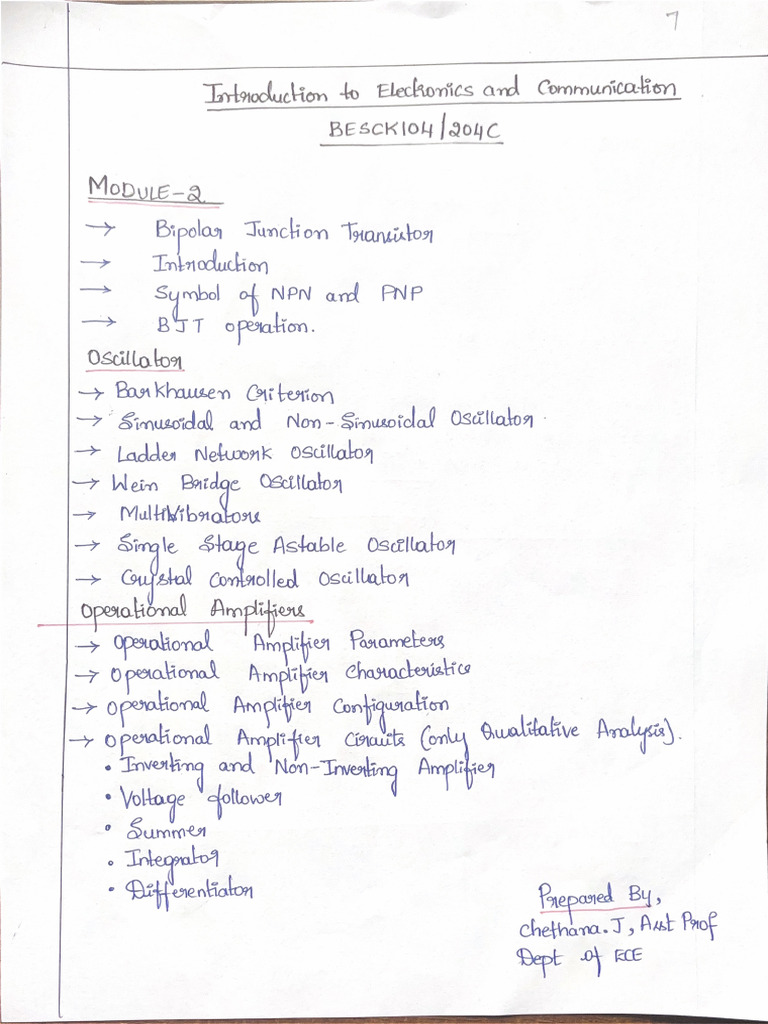 7
Introduction to Electronics and Communication
BESCK104/204C
MODULE-2
→ Bipolar Junction Transistor
→ Introduction
→ Symbol of NPN and PNP
→ BJT operation.
Oscillator
→ Barkhausen Criterion
→ Sinusoidal and Non-Sinusoidal Oscillator
→ Ladder Network Oscillator
→ Wein Bridge Oscillator
→ Multivibrators
→ Single Stage Astable Oscillator
→ Crystal Controlled Oscillator
Operational Amplifiers
→ Operational Amplifier Parameters
→ Operational Amplifier Characteristics
→ Operational Amplifier Configuration
→ Operational Amplifier Circuits (only Qualitative Analysis).
• Inverting and Non-Inverting Amplifier
• Voltage follower
• Summer
• Integrator
• Differentiator
Prepared By,
Chethana.J, Asst Prof
Dept of ECE